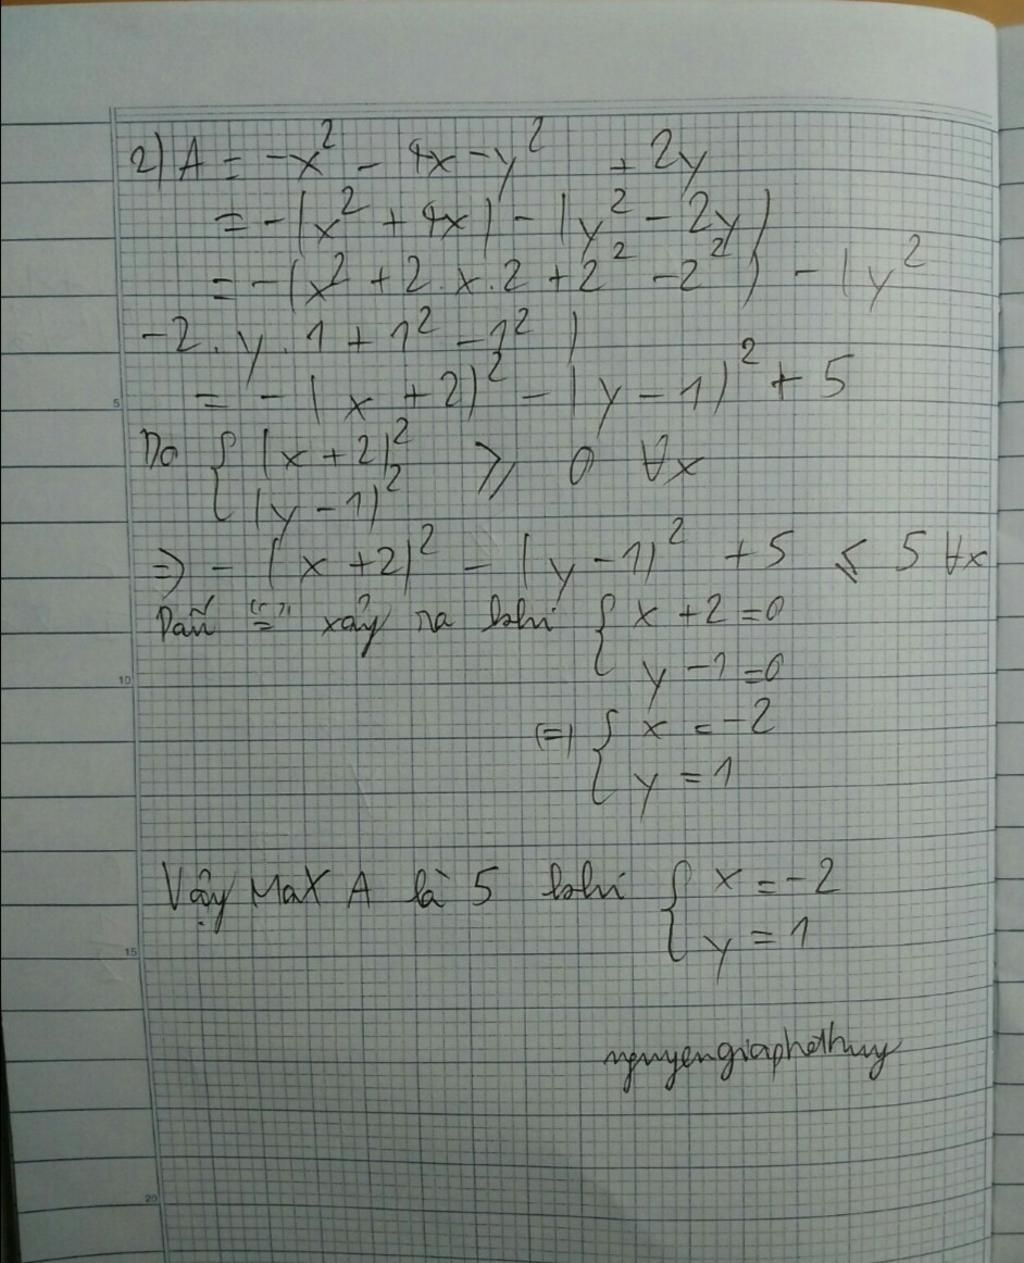 2) A = -x² - 4x - y² + 2y
= -(x² + 4x) - (y² - 2y)
= -(x² + 2.x.2 + 2² - 2²) - (y²
-2.y.1 + 1² - 1²)
= -(x + 2)² - (y - 1)² + 5
Do { (x + 2)² ⩾ 0 ∀x
(y - 1)²
=> -(x + 2)² - (y - 1)² + 5 ⩽ 5 ∀x
Dấu "=" xảy ra khi { x + 2 = 0
y - 1 = 0
(=) { x = -2
y = 1
Vậy Max A là 5 khi { x = -2
y = 1
nguyengiaphothuy
5
10
15
20